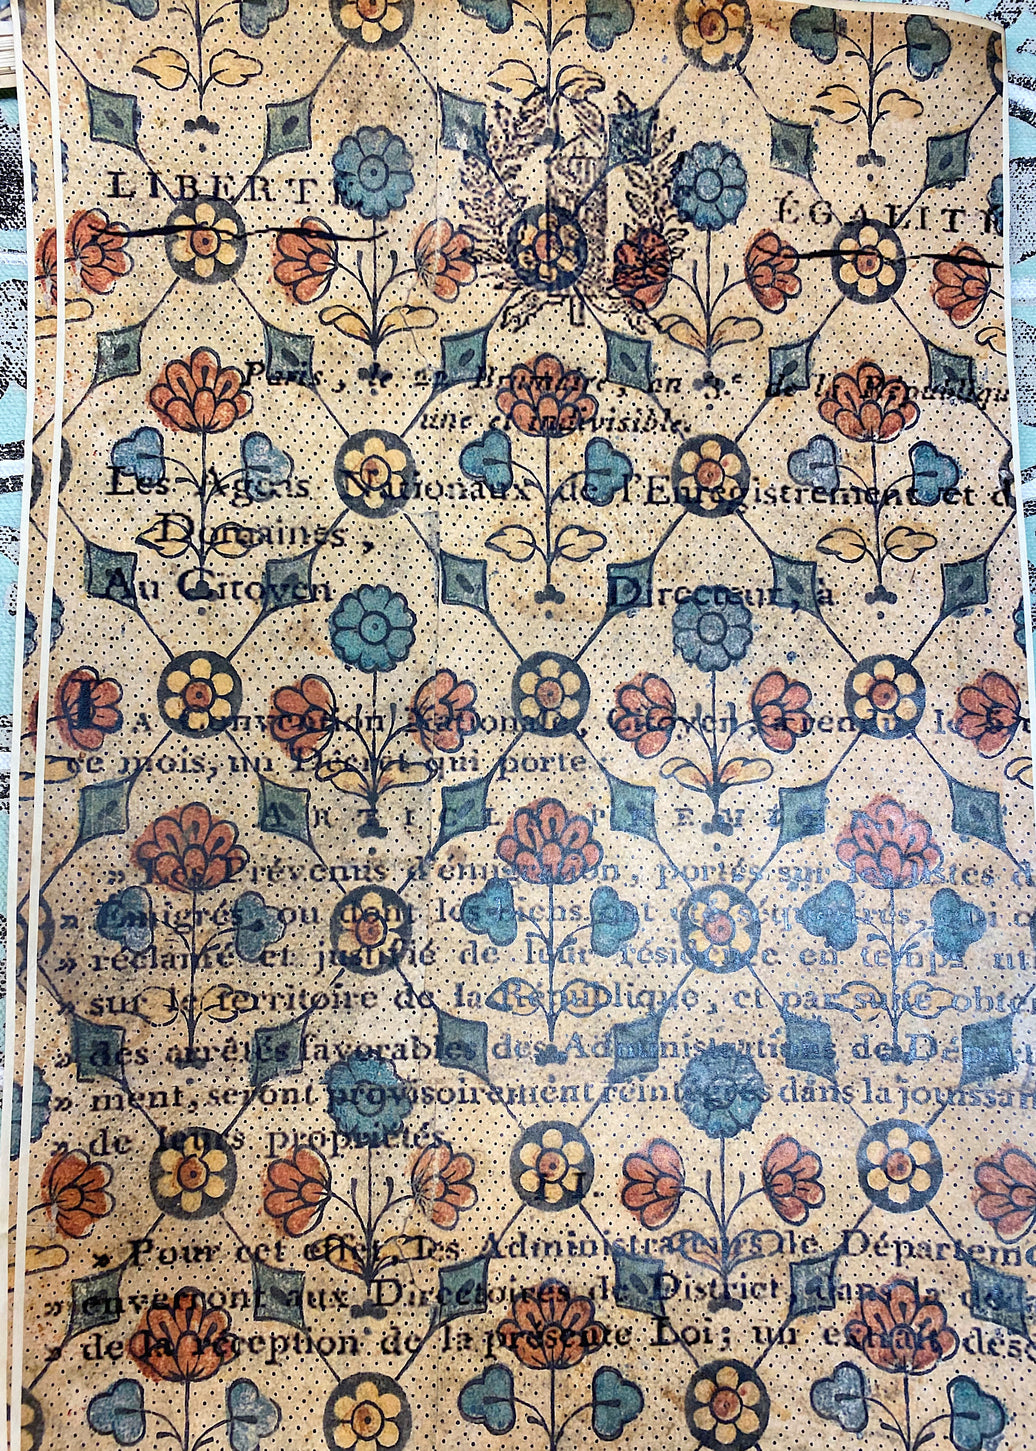 LIBERTÉ
ÉGALITÉ
Paris, le 22 Brumaire, an 3.e de la République
une et indivisible.
Les Agens Nationaux de l'Enregistrement et d
Domaines,
Au Citoyen Directeur, à
LA Convention Nationale, Citoyen, a rendu le
ce mois, un Décret qui porte:
ARTICLE PREMIER
» Les Prévenus d'émigration, portés sur les listes d
» Émigrés, ou dont les biens ont été séquestrés, qui o
» réclamé et justifié de leur résidence en temps uti
» sur le territoire de la République, et par suite obte
» des arrêtés favorables des Administrations de Dépar
» ment, seront provisoirement réintégrés dans la jouissan
» de leurs propriétés.
II.
» Pour cet effet, les Administrateurs de Départeme
» enverront aux Directoires de District, dans la
» de la réception de la présente Loi; un extrait desd